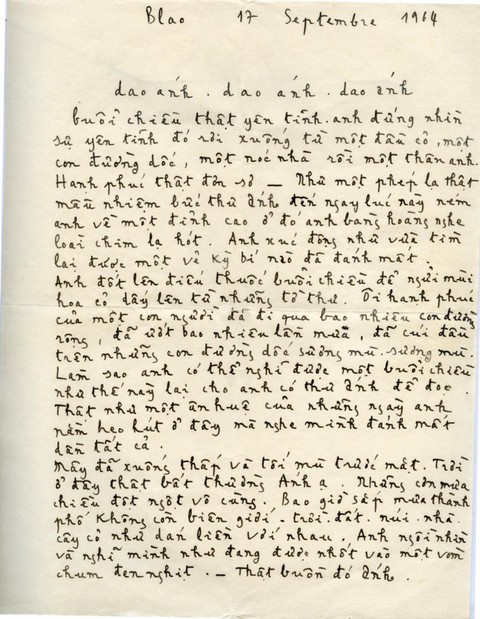 Blao 17 Septembre 1964
dao ánh . dao ánh . dao ánh
buổi chiều thật yên tĩnh. anh đứng nhìn
sự yên tĩnh đó rơi xuống từ một đầu cỏ, một
con đường dốc, một nóc nhà rồi một thân anh.
Hạnh phúc thật đơn sơ — Như một phép lạ thật
mầu nhiệm bức thư Ánh đến ngay lúc này ném
anh về một đỉnh cao ở đó anh bàng hoàng nghe
loài chim lạ hót. Anh xúc động như vừa tìm
lại được một vẻ kỳ bí nào đã đánh mất.
Anh đốt lên điếu thuốc buổi chiều để ngửi mùi
hoa cỏ dậy lên từ những tờ thư. Ôi hạnh phúc
của một con người đã đi qua bao nhiêu con đường
rộng, đã ướt bao nhiêu lần mưa, đã cúi đầu
trên những con đường dốc sương mù. sương mù.
Làm sao anh có thể nghĩ được một buổi chiều
như thế này lại cho anh có thư Ánh để đọc.
Thật như một ân huệ của những ngày anh
nằm heo hút ở đây mà nghe mình đánh mất
dần tất cả.
Mây đã xuống thấp và tối mù trước mặt. Trời
ở đây thật bất thường Ánh ạ. Những cơn mưa
chiều đột ngột vô cùng. Bao giờ sắp mưa thành
phố không còn biên giới. trời. đất. núi. nhà.
cây cỏ như dán liền với nhau. Anh ngồi nhìn
và nghĩ mình như đang được nhốt vào một vòm
chum đen nghịt. — Thật buồn đó Ánh.